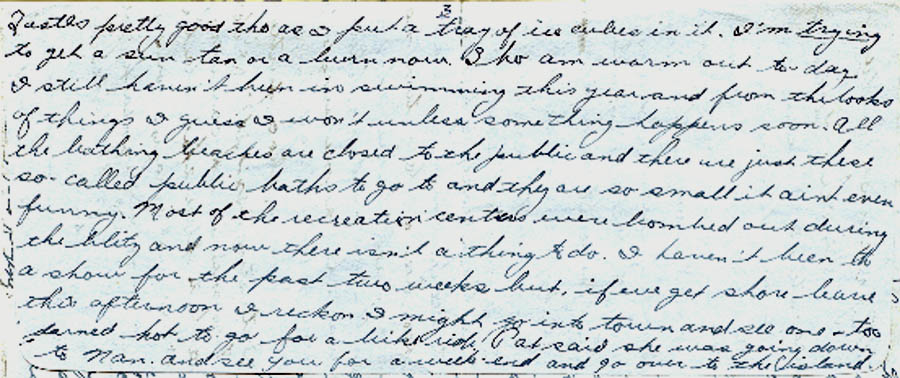 3
Tastes pretty good tho as I put a tray of ice cubes in it. I'm trying
to get a sun tan or a burn now. I ho am warm out to-day
I still haven't been in swimming this year and from the looks
of things I guess I won't unless something happens soon. All
the bathing beaches are closed to the public and there are just these
so-called public baths to go to and they are so small it aint even
funny. Most of the recreation centers were bombed out during
the blitz and now there isn't a thing to do. I haven't been to
a show for the past two weeks but, if we get shore leave
this afternoon I reckon I might go into town and see one - too
darned hot to go for a bike ride. Pat said she was going down
to Nan. and see you for a week-end and go over to the island